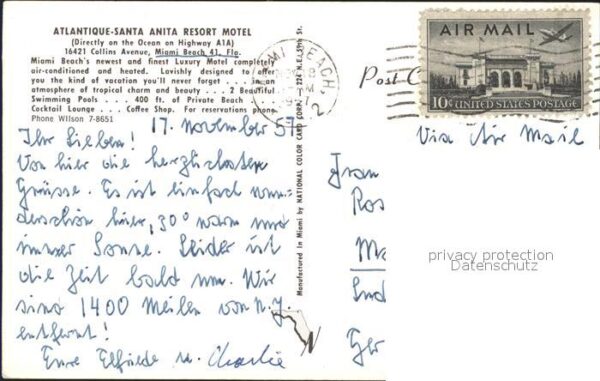 ATLANTIQUE-SANTA ANITA RESORT MOTEL
(Directly on the Ocean on Highway A1A)
16421 Collins Avenue, Miami Beach 41, Fla.
Miami Beach's newest and finest Luxury Motel completely
air-conditioned and heated. Lavishly designed to offer
you the kind of vacation you'll never forget ... in an
atmosphere of tropical charm and beauty ... 2 Beautiful
Swimming Pools ... 400 ft. of Private Beach ...
Cocktail Lounge ... Coffee Shop. For reservations phone
Phone Wilson 7-8651
17. November 57
Ihr Lieben!
Von hier die herzlichsten
Grüsse. Es ist einfach wun-
derschön hier, 30° warm und
immer Sonne. Leider ist
die Zeit bald um. Wir
sind 1400 Meilen von N.Y.
entfernt!
Eure Elfriede u. Charlie
Manufactured in Miami by NATIONAL COLOR CARD CORP., 224 N.E. 59th St.
MIAMI BEACH
2
Post C
AIR MAIL
10¢ UNITED STATES POSTAGE
Via Air Mail
Ros
Ma
privacy protection
Datenschutz
Ger